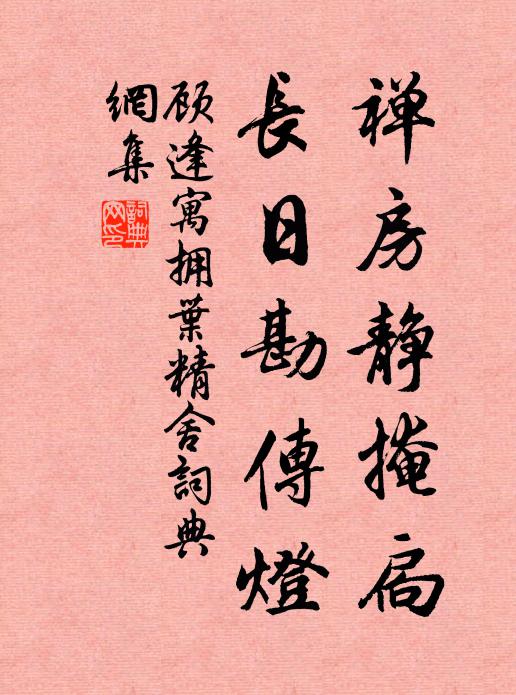 禅房静掩扃
長日勘傳燈
顾逢寓拥葉精舍詞典
網集
詞典
网印